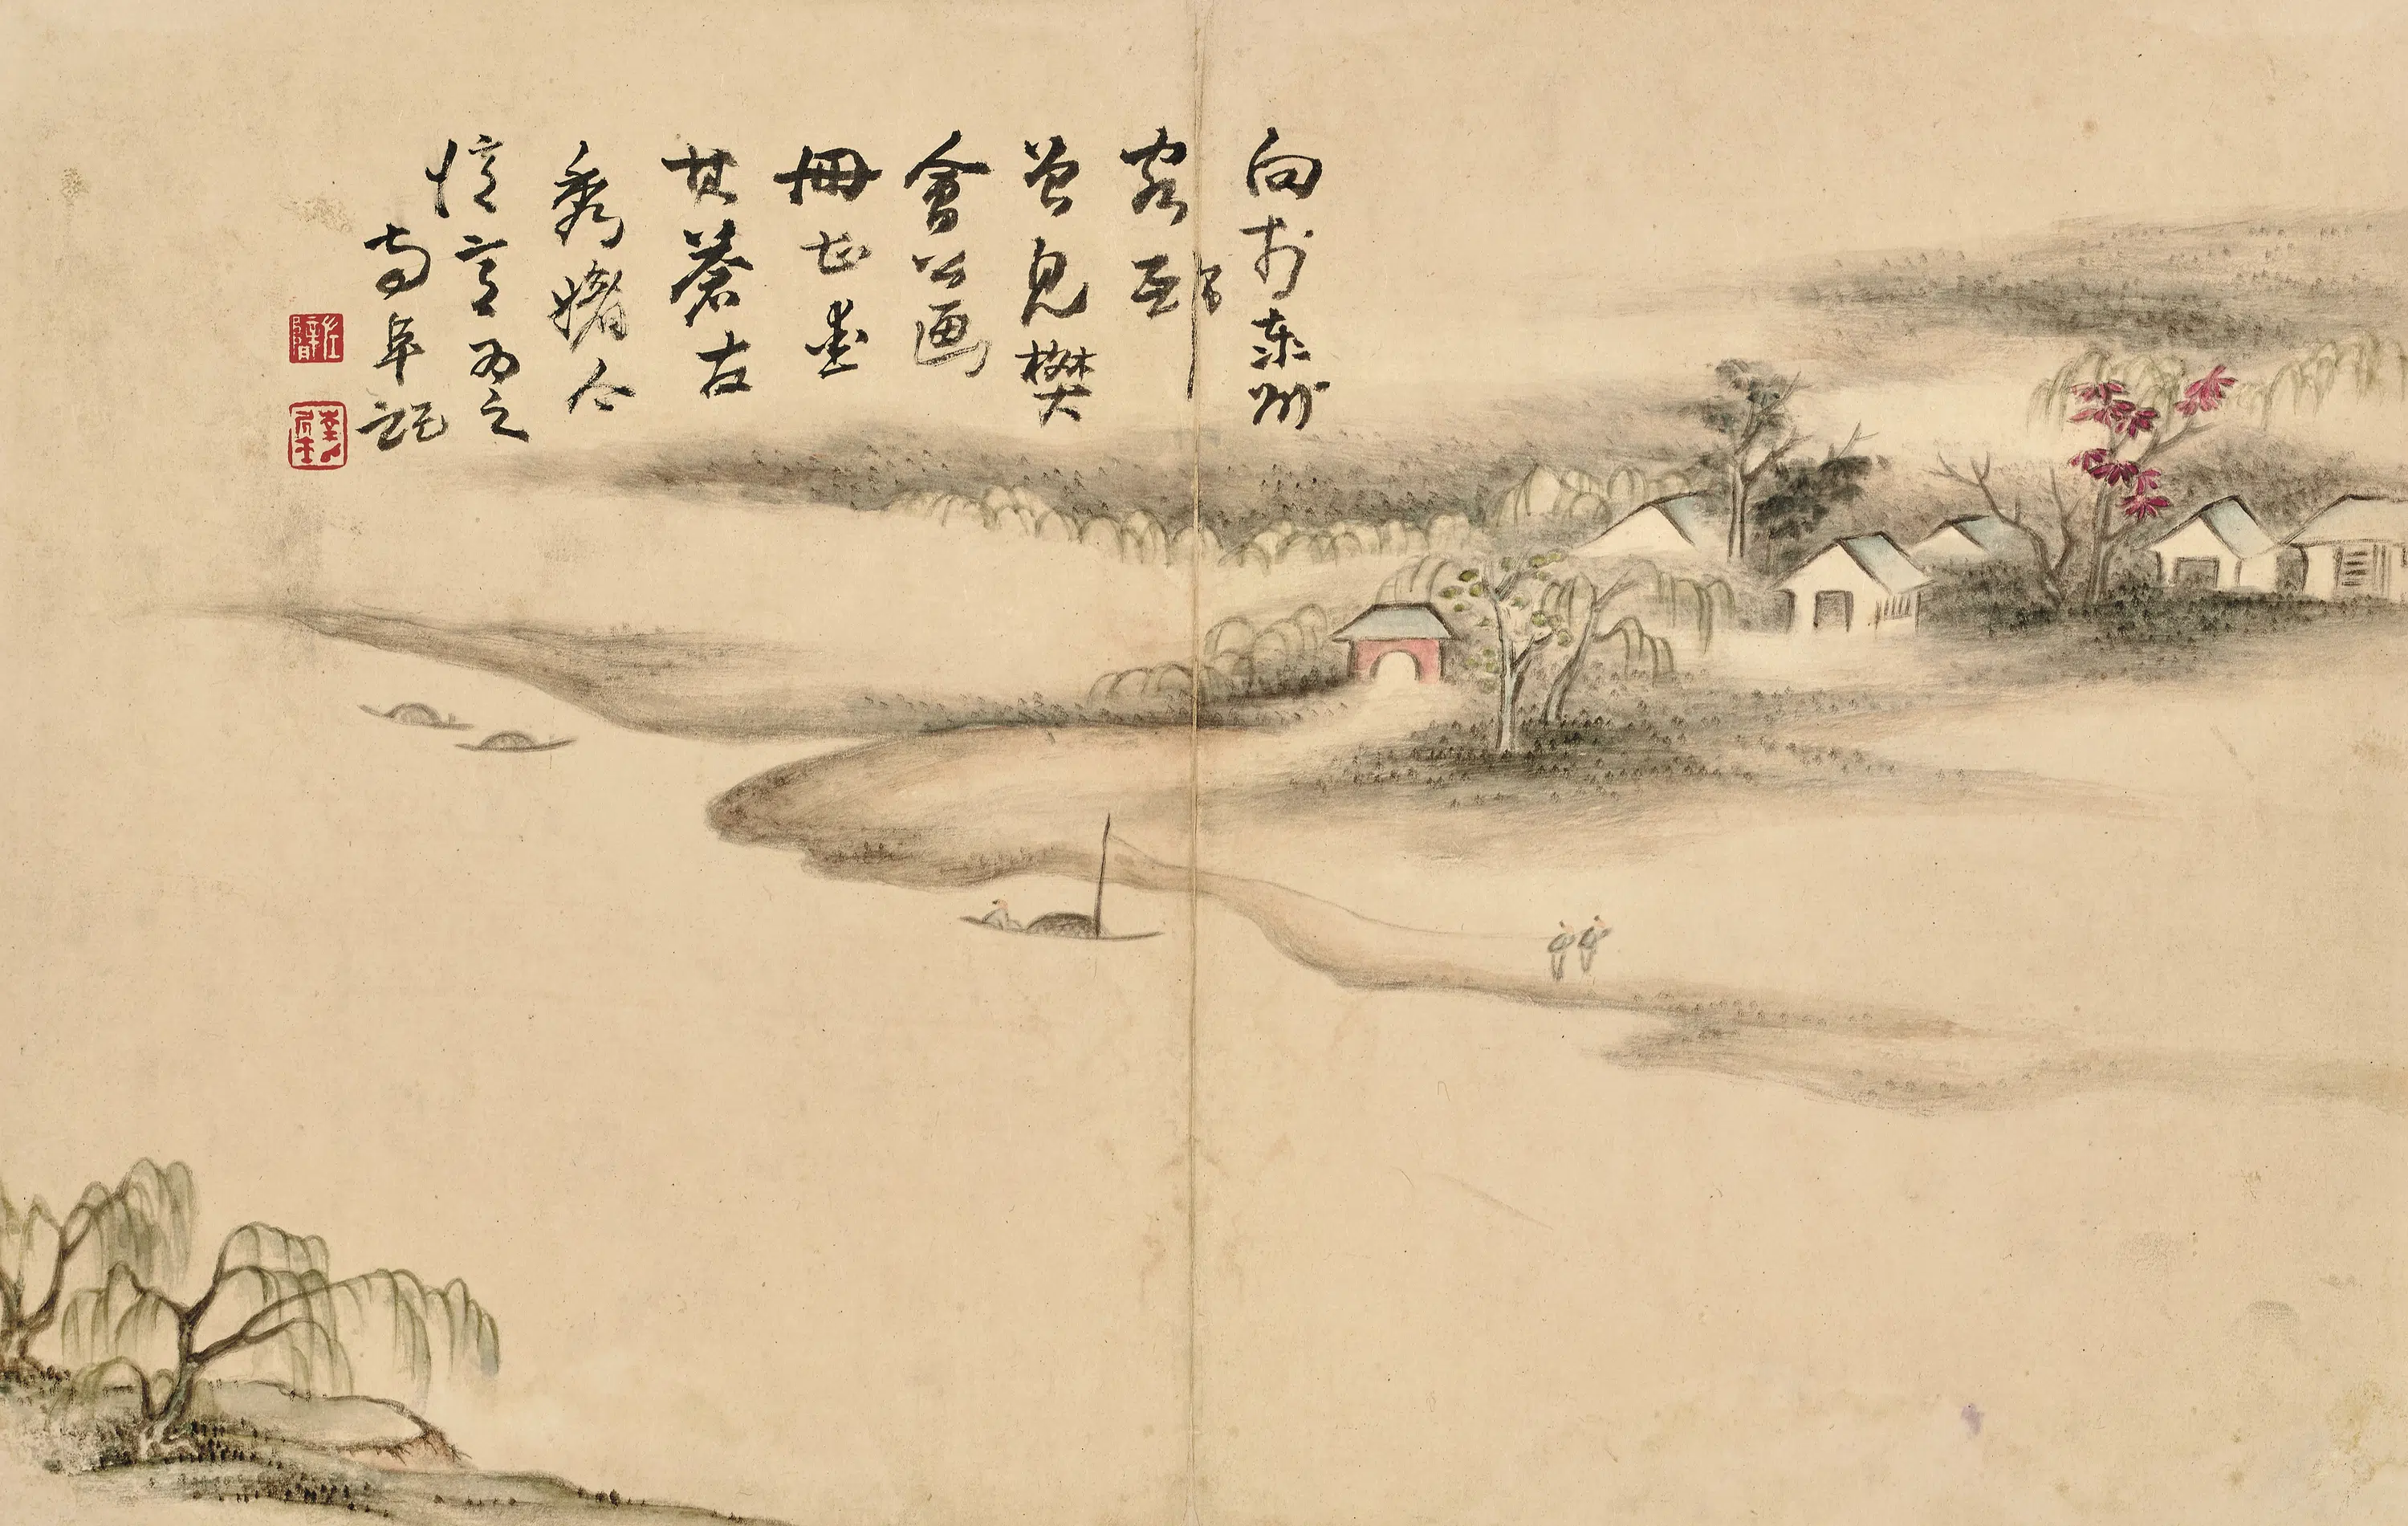 向於東州
客邸
曾見樊
會公画
冊甚愛
其蒼古
秀媚今
憶意為之
南阜記